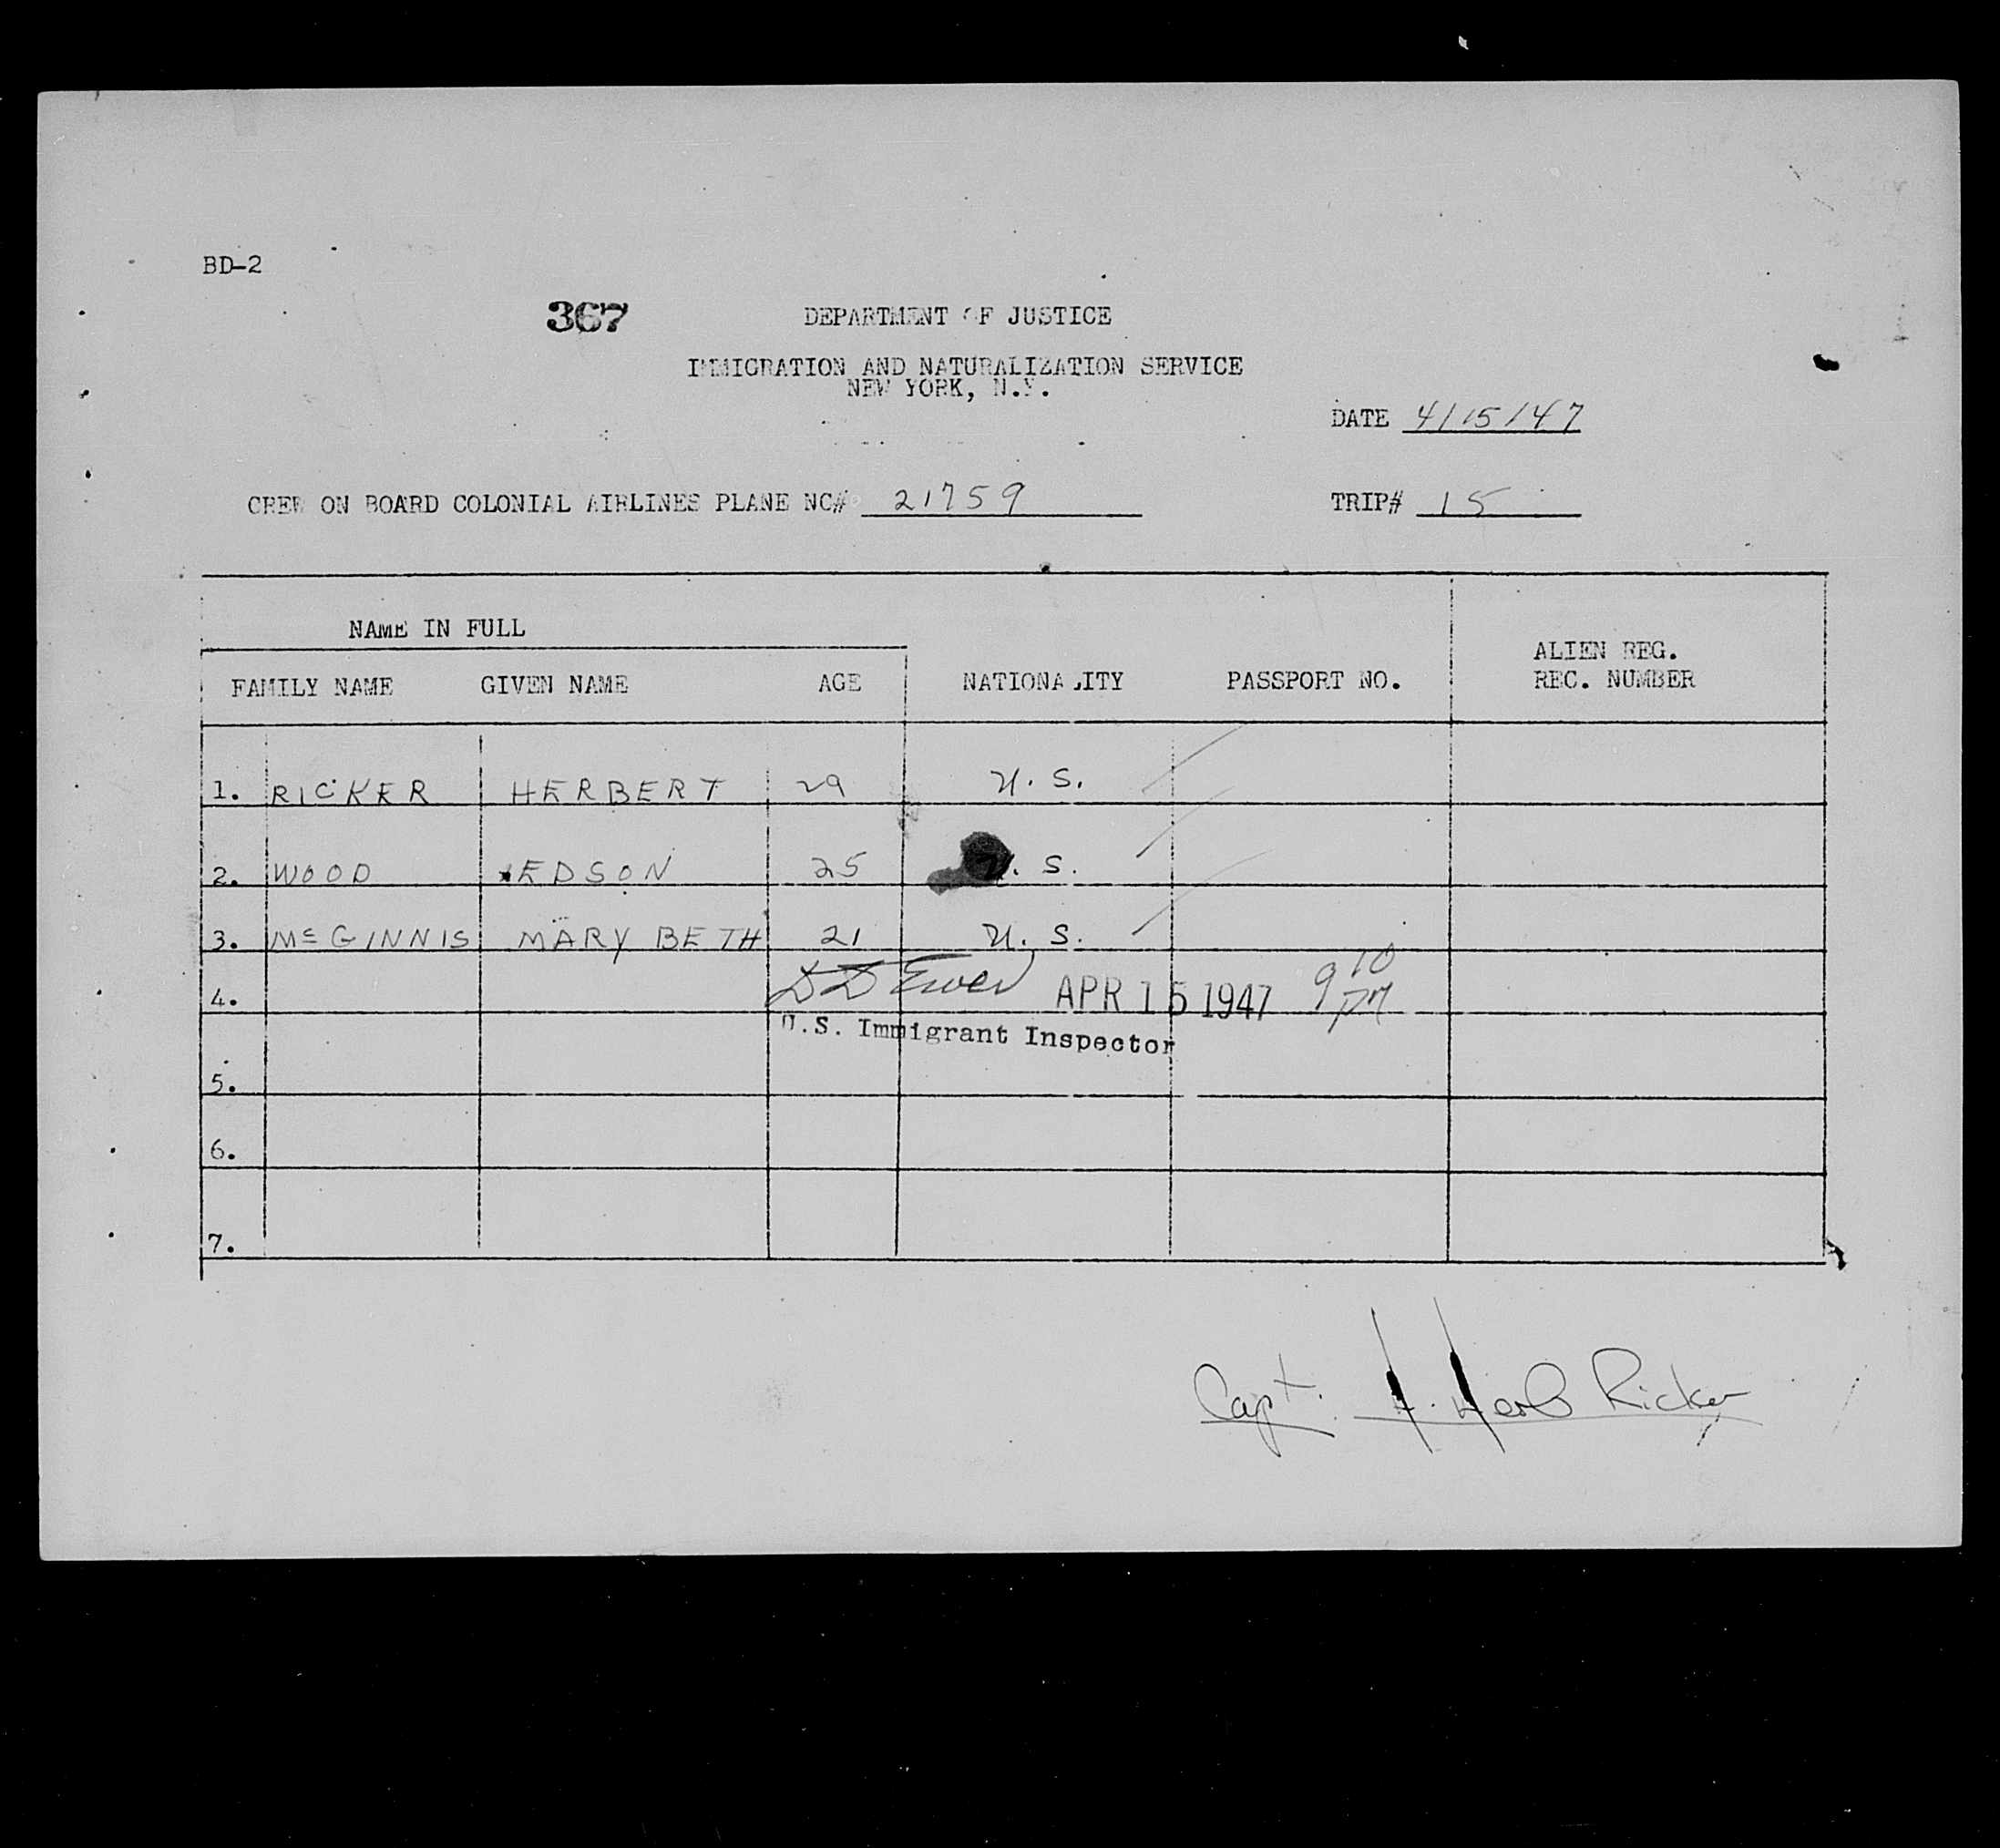 BD-2
367
DEPARTMENT OF JUSTICE
IMMIGRATION AND NATURALIZATION SERVICE
NEW YORK, N.Y.
DATE 4/15/47
CREW ON BOARD COLONIAL AIRLINES PLANE NC# 21759 TRIP# 15
NAME IN FULL
ALIEN REG.
FAMILY NAME GIVEN NAME AGE NATIONALITY PASSPORT NO. REC. NUMBER
1. RICKER HERBERT 29 U.S.
2. WOOD EDSON 25 U.S.
3. McGINNIS MARY BETH 21 U.S.
4. APR 15 1947 9 10 PM
U.S. Immigrant Inspector
5.
6.
7.
Capt. H. Herb Ricker